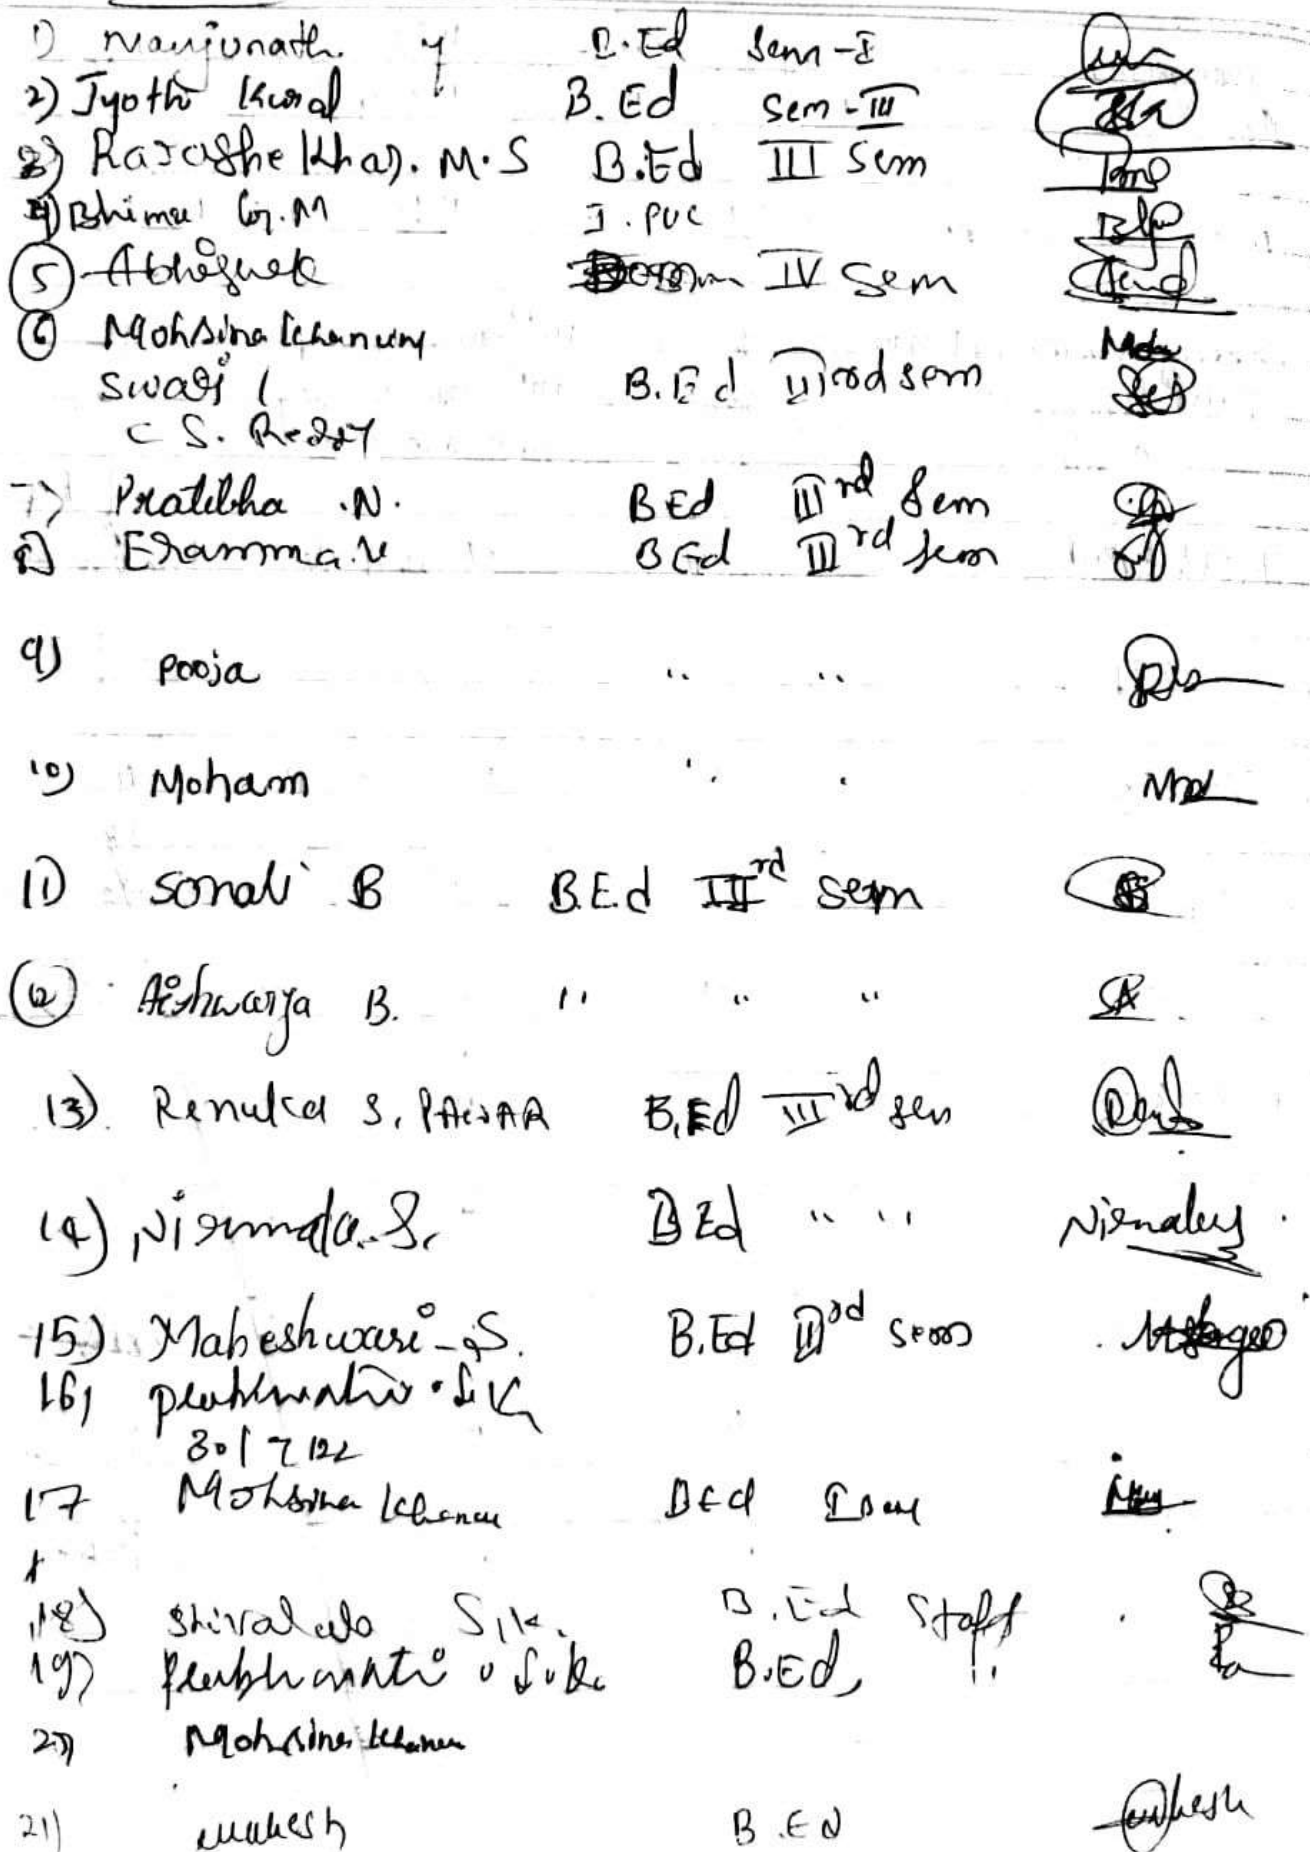 1) Manjunath. y B.Ed Sem-I
2) Jyothi Kural B.Ed Sem-III
3) Rajashekhar. M.S B.Ed III Sem
4) Bhima G.M I. PUC
5 Abhishek IV Sem
6 Mohsina Khanum
Swati C B.Ed III rd sem
C S. Reddy
7) Pratibha .N. B Ed III rd Sem
8) Eramma.V B Ed III rd Sem
9) Pooja " "
10) Moham " "
11) Sonali B B.Ed III rd Sem
12 Aishwarya B. " " "
13) Renuka S. PAWAR B.Ed III rd sem
14) Nirmala.S. B Ed " " Nirmala
15) Maheshwari-S. B.Ed III rd Sem
16) S.K
30/7/22
17 Mohsina Khanum B Ed I Sem
18) S.K. B.Ed Staff
19) S.K. B.Ed, "
20) Mohsina Khanum
21) Mahesh B.Ed Mahesh